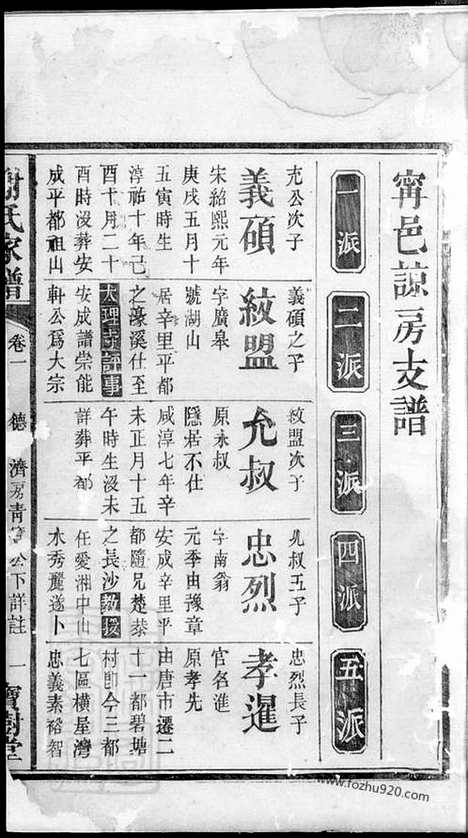 甯邑諒房支譜
一派
二派
三派
四派
五派
充公次子
義碩
宋紹熙元年
庚戌五月十
五寅時生
淳祐十年己
酉十月二十
酉時沒葬安
成平都祖山
義碩之子
紋盟
字廣臯
號湖山
居辛里平都
之濠溪仕至
大理寺評事
安成譜崇能
軒公爲大宗
紋盟次子
允叔
原永叔
隱若不仕
咸淳七年辛
未正月十五
午時生没未
詳葬平都
允叔五子
忠烈
字南翁
元季由豫章
安成辛里平
都隨兄楚恭
之長沙教授
任愛湘中山
水秀麗遂卜
忠烈長子
孝暹
官名淮
原孝先
由唐市遷二
十一都碧塘
村卽今三都
七區橫屋灣
忠義素裕智
謝氏家譜
卷一
德濟房青
公下詳註
一
寶樹堂
www.fozhu920.com